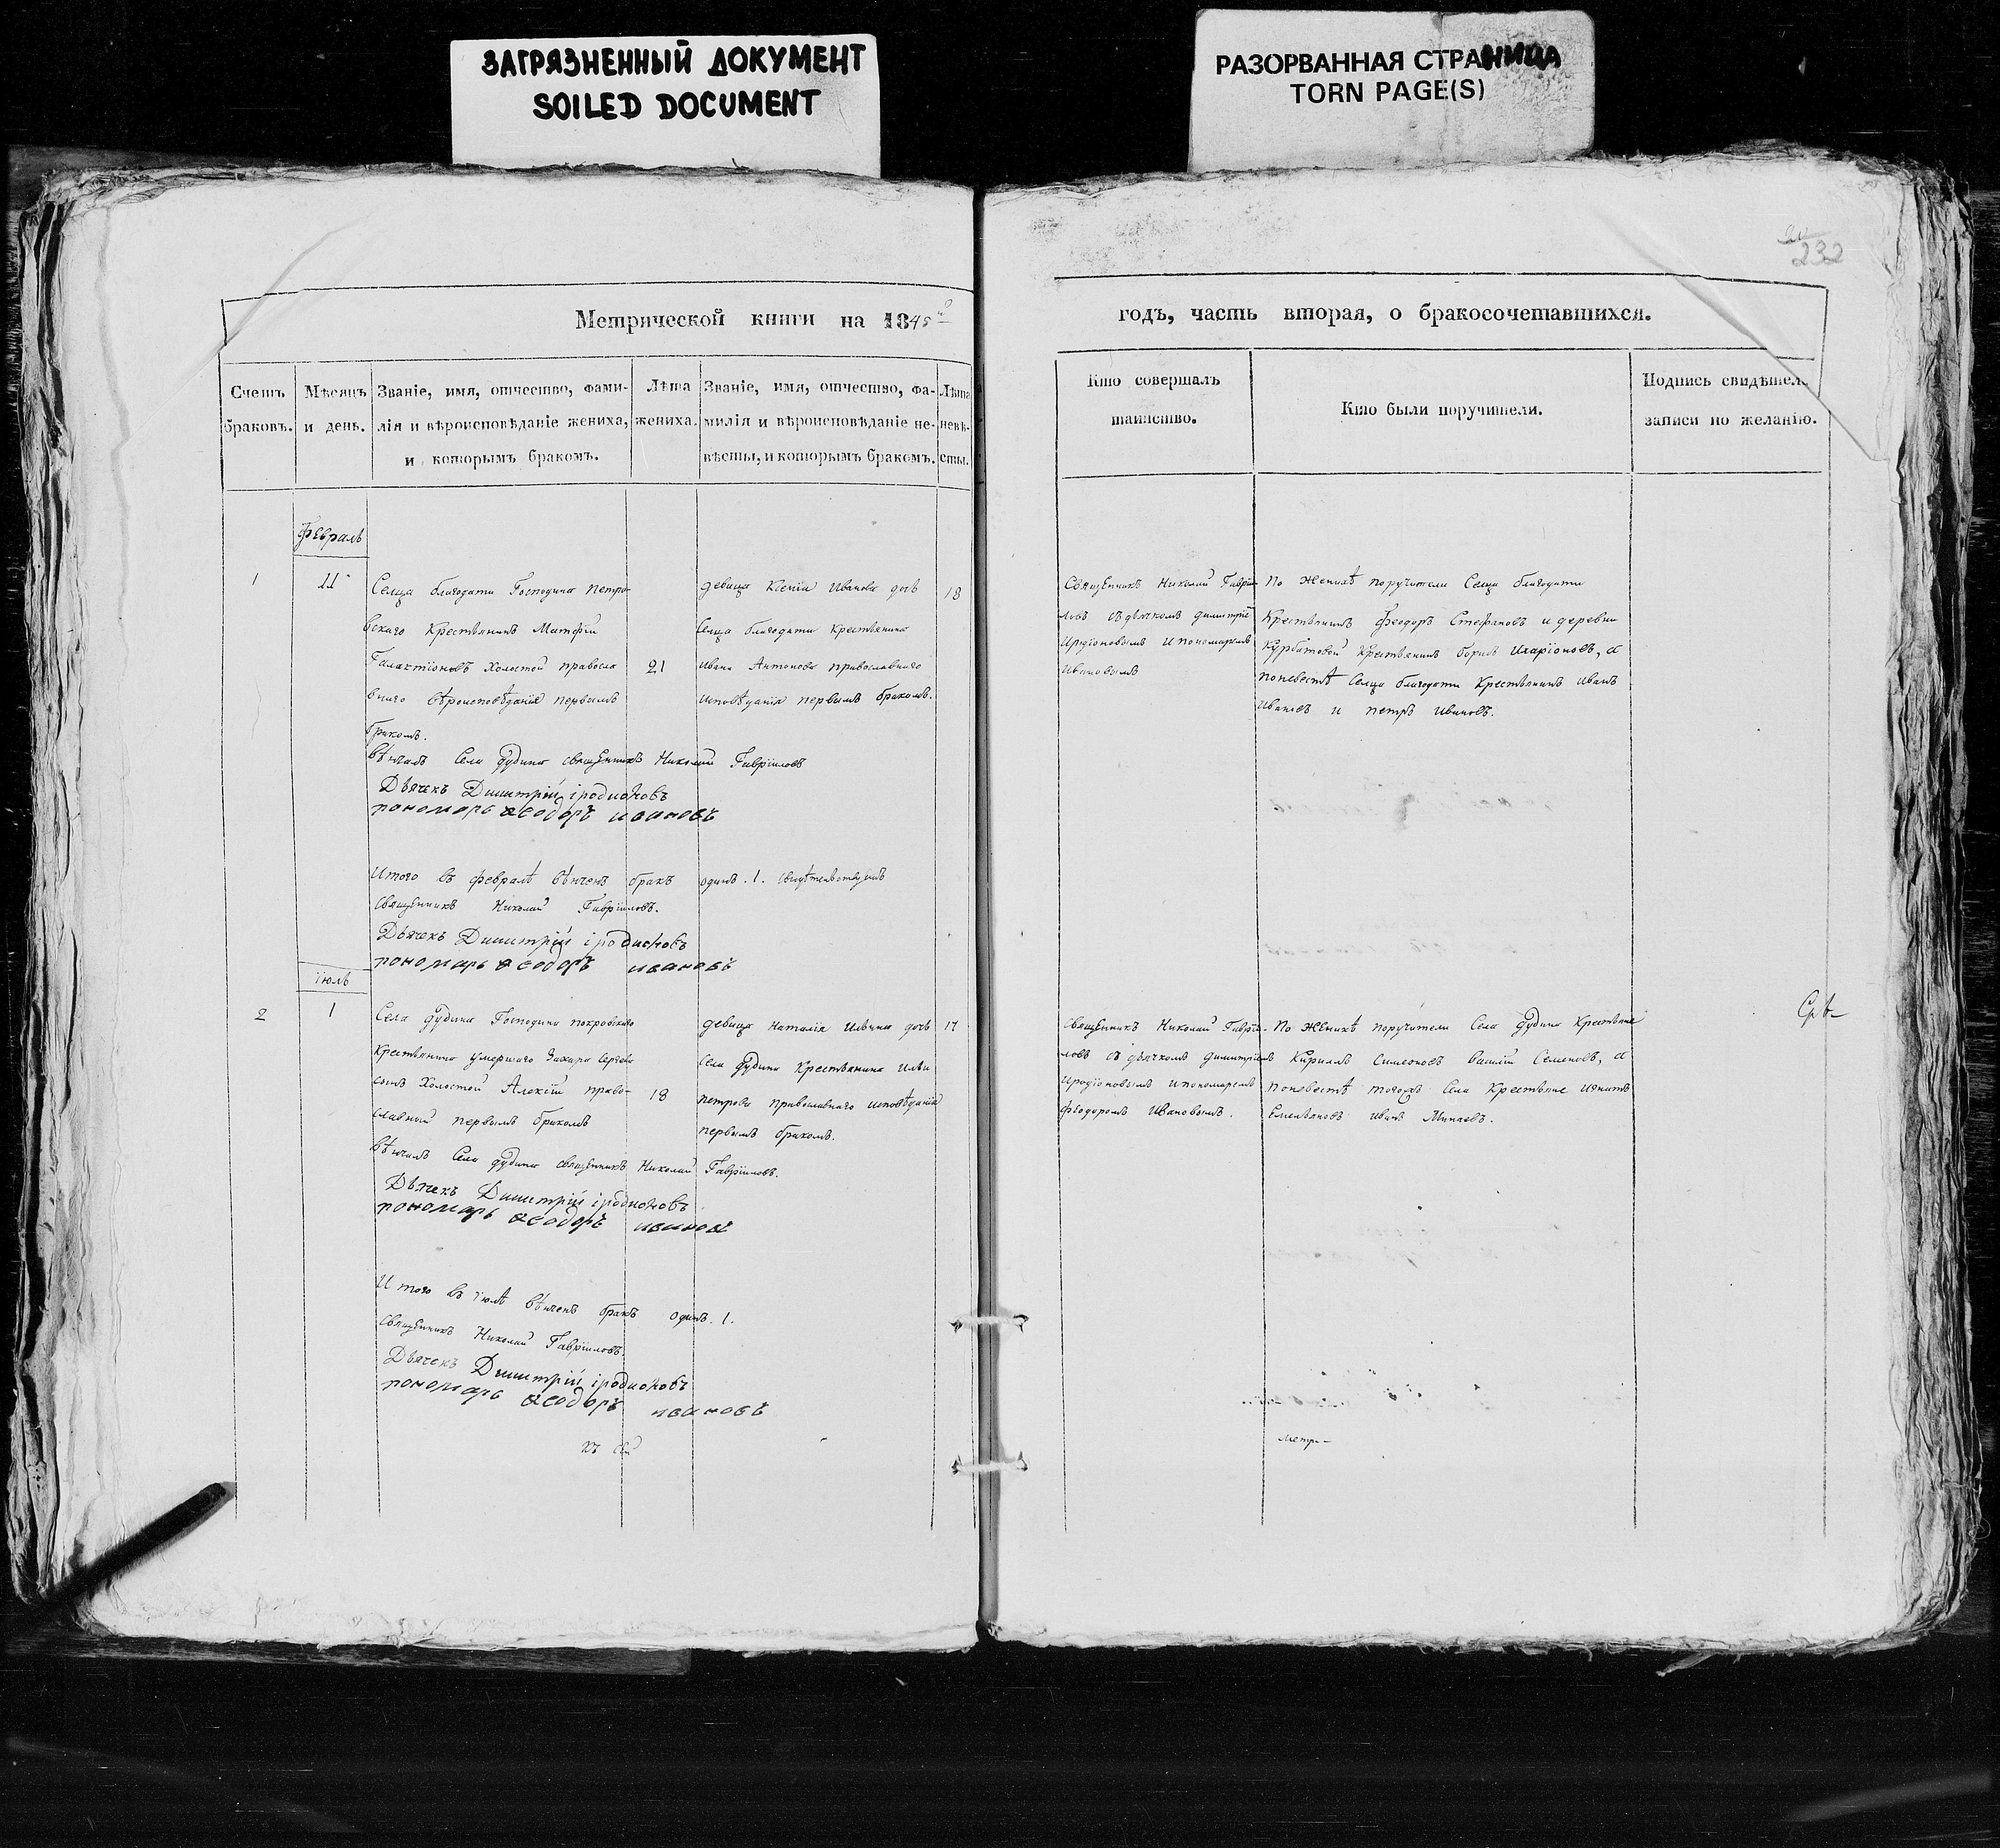 ЗАГРЯЗНЕННЫЙ ДОКУМЕНТ
SOILED DOCUMENT
РАЗОРВАННАЯ СТРАНИЦА
TORN PAGE(S)
232
Метрической книги на 1845
годъ, часть вторая, о бракосочетавшихся.
Счетъ
браковъ.
Мѣсяцъ
и день.
Званіе, имя, отчество, фами-
лія и вѣроисповѣданіе жениха,
и которымъ бракомъ.
Лѣта
жениха.
Званіе, имя, отчество, фа-
милія и вѣроисповѣданіе не-
вѣсты, и которымъ бракомъ.
Лѣта
невѣ-
сты.
Кто совершалъ
таинство.
Кто были поручители.
Подпись свидѣтел.
записи по желанію.
Февраль
1
11
Селца благодати Господина Петро-
вскаго Крестьянинъ Матфій
Галактіоновъ Холостой правосла
внаго вѣроисповѣданія первымъ
бракомъ.
21
девица Ксенія Иванова дочь
Селца благодати крестьянина
Ивана Антонова православнаго
исповѣданія первымъ бракомъ.
18
Священникъ Николай Гаврiи-
ловъ съ дьячкомъ Димитріе
Иродіоновымъ и пономаремъ
Ивановымъ
По женихѣ поручители Селца благодати
Крестьянинъ Феодоръ Стефановъ и деревни
Курбатовой Крестьянинъ Борисъ Иларіоновъ, а
по невестѣ Селца благодати Крестьянинъ Иванъ
Ивановъ и петръ Ивановъ.
вѣнчалъ Села Дудина священникъ Николай Гавріиловъ
Дьячекъ Димитрій іродионовъ
пономарь Ѳеодоръ ивановъ
Итого въ февралѣ вѣнченъ бракъ одинъ. 1. свидѣтельствуемъ
священникъ Николай Гавріиловъ.
Дьячекъ Димитрій іродионовъ
пономарь Ѳеодоръ ивановъ
Іюль
2
1
Села Дудина Господина покровскаго
Крестьянина умершаго Захара Сергѣева
сынъ Холостой Алексій право-
славный первымъ бракомъ
18
девица Наталія Ильина дочь
Села Дудина Крестьянина Ильи
петрова православнаго исповѣданія
первымъ бракомъ.
17
священникъ Николай Гаврiи-
ловъ съ дьячкомъ Димитріемъ
Иродіоновымъ и пономаремъ
Феодоромъ Ивановымъ.
По женихѣ поручители Села Дудина Крестьяне
Кириллъ Симеоновъ Василій Семеновъ, а
по невестѣ тогожъ Села Крестьяне Игнатъ
Емельяновъ Иванъ Минаевъ.
вѣнчалъ Села Дудина священникъ Николай Гавріиловъ.
Дьячекъ Димитрій іродионовъ
пономарь Ѳеодоръ ивановъ
Итого въ Іюлѣ вѣнченъ бракъ одинъ. 1.
священникъ Николай Гавріиловъ.
Дьячекъ Димитрій іродионовъ
пономарь Ѳеодоръ ивановъ
метр-